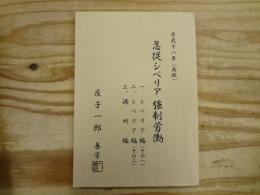 平成十八年(再版)
忍従シベリア強制労働
一、シベリア編(その一)
二、シベリア編(その二)
三、満州編
庄子一郎